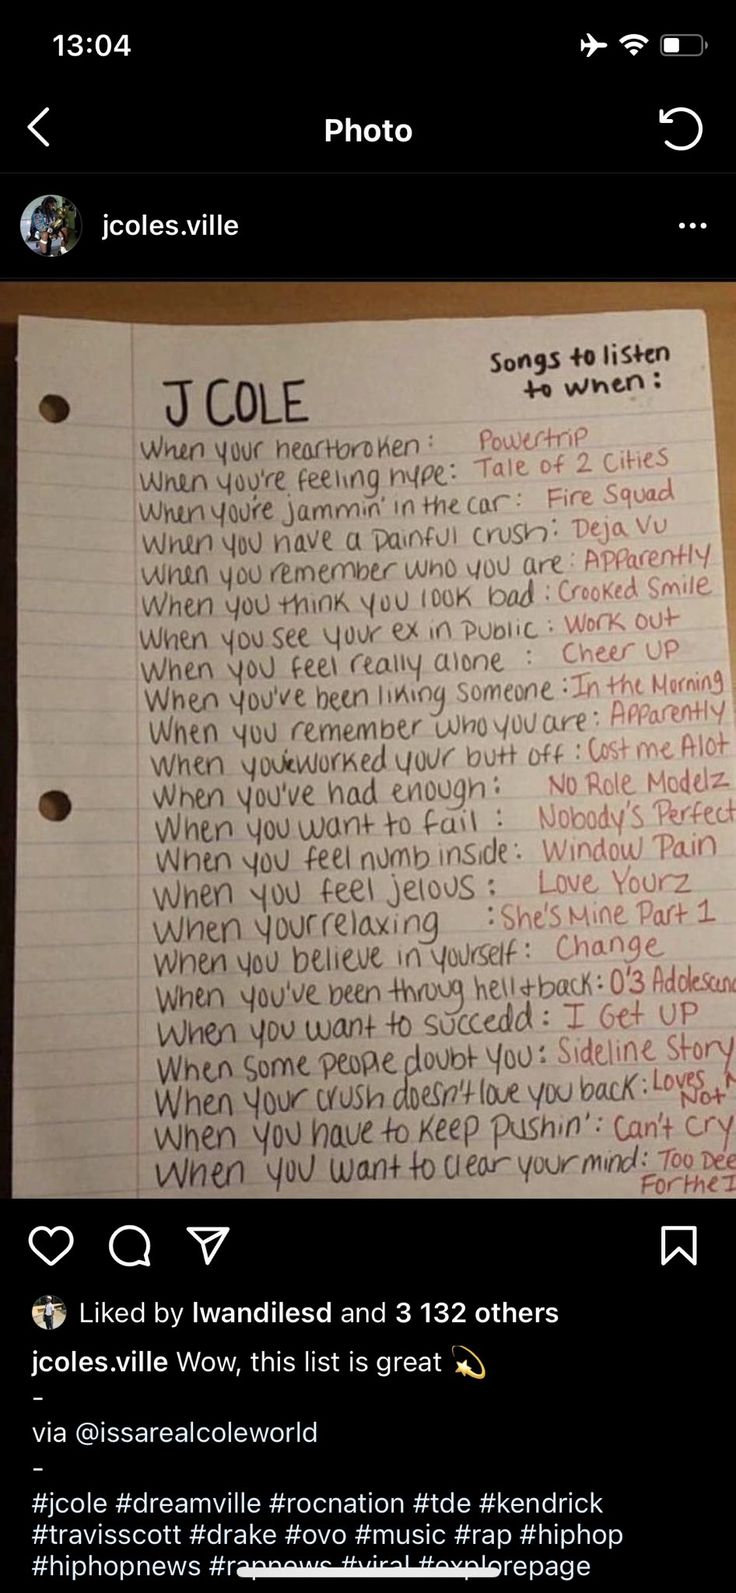 13:04
Photo
jcoles.ville
Songs to listen
to when:
J COLE
When your heartbroken: Powertrip
When you're feeling hype: Tale of 2 Cities
When you're jammin' in the car: Fire Squad
When you have a painful crush: Deja Vu
When you remember who you are: Apparently
When you think you look bad: Crooked Smile
When you see your ex in public: Work out
When you feel really alone : Cheer UP
When you've been liking someone: In the Morning
When you remember who you are: Apparently
When you've worked your butt off: Cost me Alot
When you've had enough: No Role Modelz
When you want to fail : Nobody's Perfect
When you feel numb inside: Window Pain
When you feel jelous: Love Yourz
When your relaxing : She's Mine Part 1
When you believe in yourself: Change
When you've been throug hell + back: 0'3 Adolescenc
When you want to succedd: I Get UP
When some people doubt you: Sideline Story
When your crush doesn't love you back: Loves Me Not
When you have to keep pushin': Can't Cry
When you want to clear your mind: Too Dee
For the I
Liked by lwandilesd and 3 132 others
jcoles.ville Wow, this list is great 💫
-
via @issarealcoleworld
-
#jcole #dreamville #rocnation #tde #kendrick
#travisscott #drake #ovo #music #rap #hiphop
#hiphopnews #rapnews #viral #explorepage